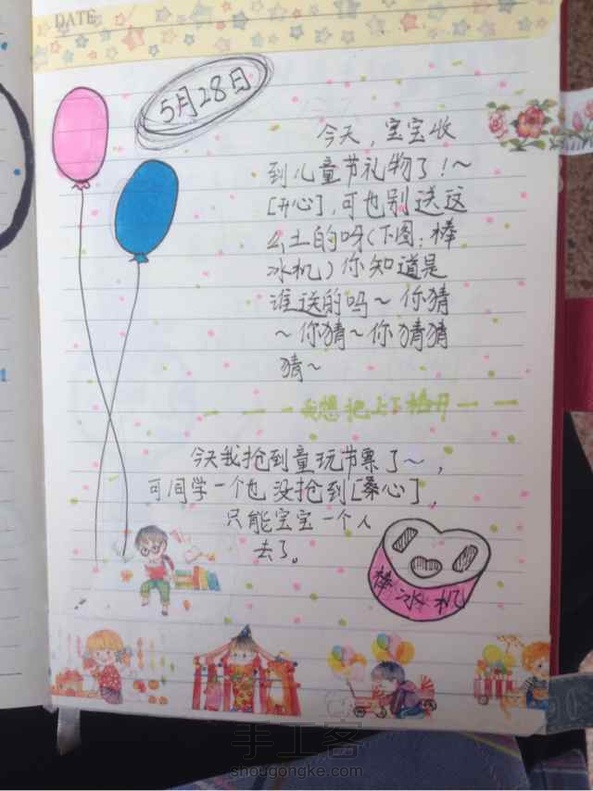 DATE
5月28日
今天，宝宝收
到儿童节礼物了！～
[开心]，可也别送这
么土的呀（下图：棒
冰机）你知道是
谁送的吗～你猜
～你猜～你猜猜
猜～
我想把上下格开
今天我抢到童玩节票了～，
可同学一个也没抢到[桑心]，
只能宝宝一个人
去了。
棒冰机
手工客
shougongke.com